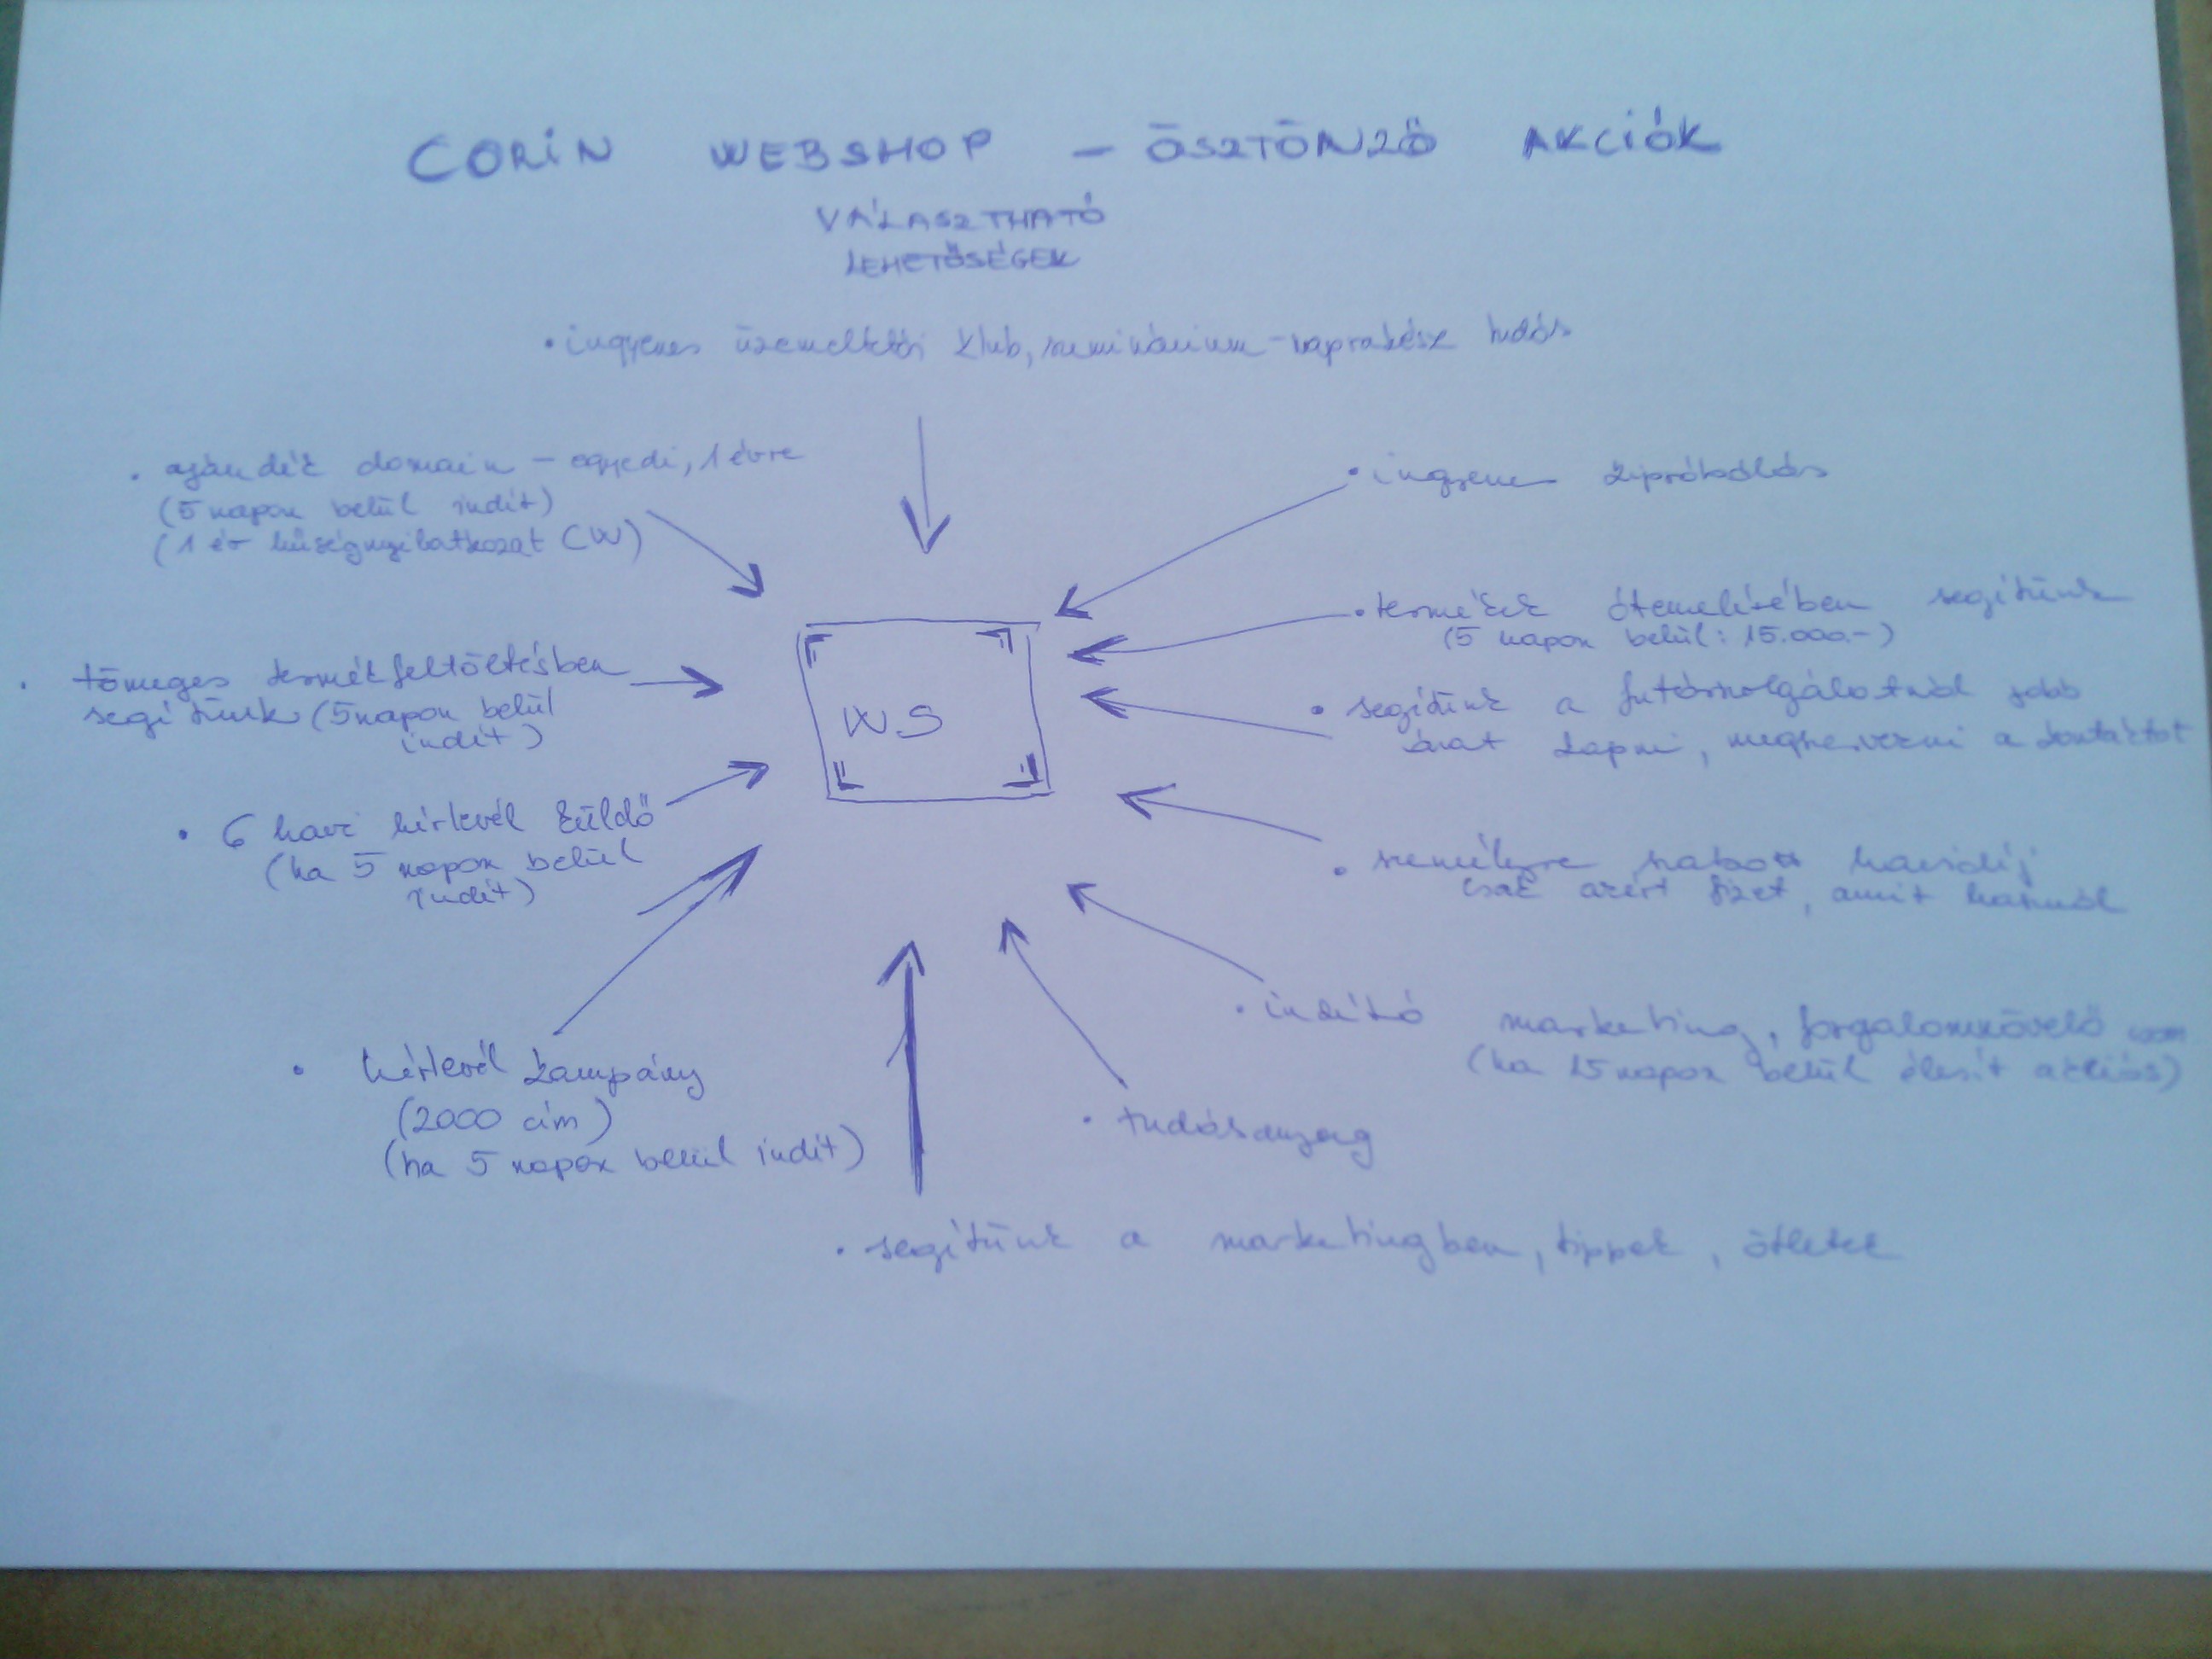 CORIN WEBSHOP - ÖSZTÖNZŐ AKCIÓK
VÁLASZTHATÓ
LEHETŐSÉGEK
• ingyenes üzemeltetői klub, szeminárium - naprakész tudás
• ajándék domain - egyedi, 1 évre
(5 napon belül indít)
(1 év hűségnyilatkozat CW)
• ingyenes kipróbálás
• termékek átemelésében segítünk
(5 napon belül: 15.000.-)
• tömeges termékfeltöltésben
segítünk (5 napon belül
indít)
• segítünk a futárszolgálatnál jobb
árat kapni, megszervezni a kontaktot
WS
• 6 havi hírlevél küldő
(ha 5 napon belül
indít)
• személyre szabott havidíj
csak azért fizet, amit használ
• hírlevél kampány
(2000 cím)
(ha 5 napon belül indít)
• indító marketing, forgalomnövelő
(ha 15 napon belül élesít akciós)
• tudásanyag
• segítünk a marketingben, tippek, ötletek